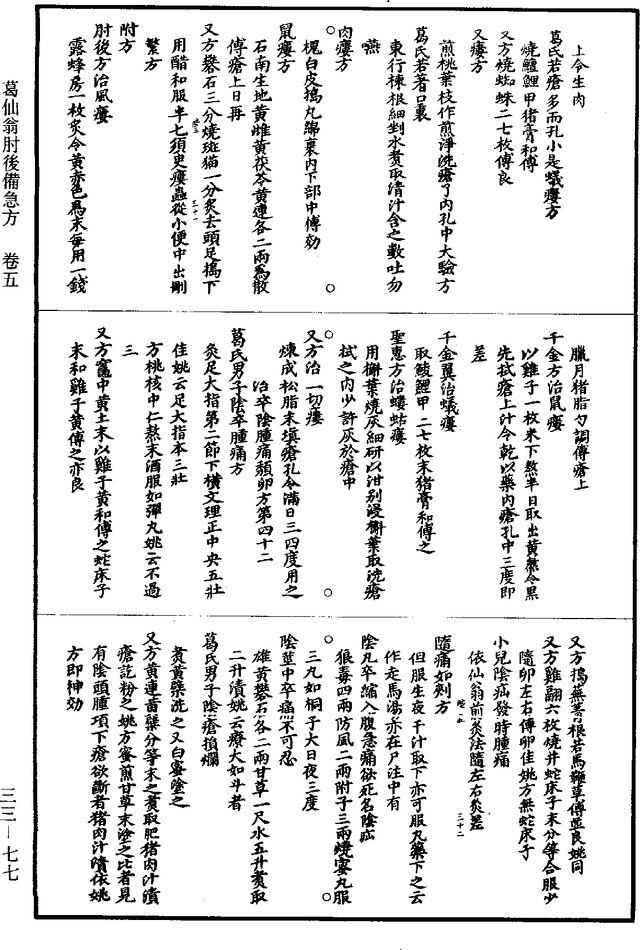 上令生肉
葛氏若瘡多而孔小是蟻瘻方
燒鱓鯉甲猪膏和傅
又方燒蜘蛛二七枚傅良
又瘻方
煎桃葉枝作煎淨洗瘡了內孔中大驗方
葛氏若著口裏
東行楝根細剉水煮取清汁含之數吐勿
嚥
肉瘻方
槐白皮搗丸綿裹內下部中傅効
鼠瘻方
石南生地黃雌黃茯苓黃連各二兩為散
傅瘡上日再
又方礬石三分燒斑猫一分炙去頭足搗下
用醋和服半匕須臾瘻蟲從小便中出刪
繁方
附方
肘後方治風瘻
露蜂房一枚炙令黃赤色為末每用一錢
臘月猪脂勻調傅瘡上
千金方治鼠瘻
以雞子一枚米下熬半日取出黃熬令黑
先拭瘡上汁令乾以藥內瘡孔中三度即
差
千金翼治蟻瘻
取鯪鯉甲二七枚末猪膏和傅之
聖惠方治螻蛄瘻
用槲葉燒灰細研以泔別浸槲葉取洗瘡
拭之內少許灰於瘡中
又方治一切瘻
煉成松脂末填瘡孔令滿日三四度用之
治卒陰腫痛頹卵方第四十二
葛氏男子陰卒腫痛方
灸足大指第二節下橫文理正中央五壯
佳姚云足大指本三壯
方桃核中仁熬末酒服如彈丸姚云不過
三
又方竈中黃土末以雞子黃和傅之蛇床子
末和雞子黃傅之亦良
又方搗蕪菁根若馬鞭草傅並良姚同
又方雞翮六枚燒并蛇床子末分等合服少
隨卵左右傅卵佳姚方無蛇床子
小兒陰疝發時腫痛
依仙翁前灸法隨左右灸差
隨痛如刺方
但服生夜干汁取下亦可服丸藥下之云
作走馬湯亦在尸注中有
陰丸卒縮入腹急痛欲死名陰疝
狼毒四兩防風二兩附子三兩燒蜜丸服
三丸如桐子大日夜三度
陰莖中卒痛不可忍
雄黃礬石各二兩甘草一尺水五升煮取
二升漬姚云療大如斗者
葛氏男子陰瘡損爛
煮黃蘗洗之又白蜜塗之
又方黃連黃蘗分等末之煮取肥猪肉汁漬
瘡訖粉之姚方蜜煎甘草末塗之比者見
有陰頭腫項下瘡欲斷者猪肉汁漬依姚
方即神効
葛仙翁肘後備急方　卷五
三三—七七